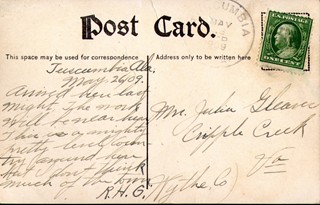 Post Card.
This space may be used for correspondence
Address only to be written here
UMBIA
MAY
U.S. POSTAGE
ONE CENT
Tuscumbia Ala,
May 26/09.
Arrived here last
night. The work
will be near here
This is a mighty
pretty level coun-
try around here
But I don't think
much of the town
R.H.G.
Mrs. Julia Gleaves
Cripple Creek
Wythe Co) Va